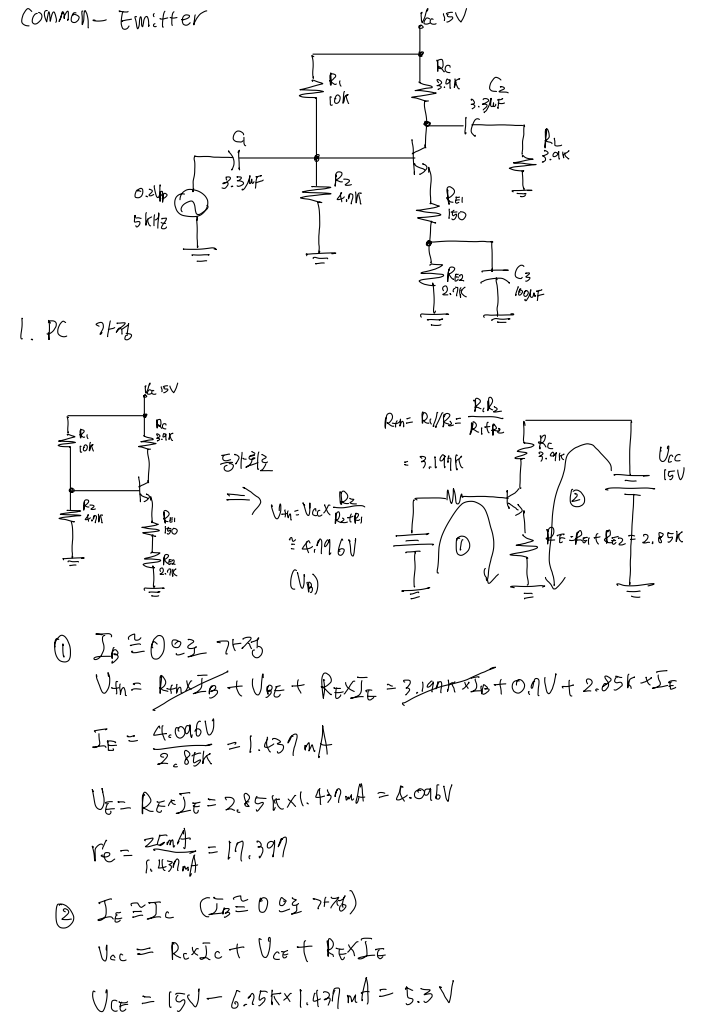 Common-Emitter
Vcc 15V
R1
10K
Rc
3.9K
C2
3.3μF
RL
3.9K
C1
3.3μF
R2
4.7K
0.2Vpp
5kHz
RE1
150
RE2
2.7K
C3
100μF
1. DC 가정
Vcc 15V
R1
10K
Rc
3.9K
R2
4.7K
RE1
150
RE2
2.7K
등가회로
⇒
Vth = Vcc × R2/(R2+R1)
≅ 4.796V
(VB)
Rth = R1//R2 = R1R2/(R1+R2)
= 3.197K
Rc
3.9K
Vcc
15V
①
②
RE = RE1 + RE2 = 2.85K
① IB ≅ 0으로 가정
Vth = Rth×IB + VBE + RE×IE = 3.197K×IB + 0.7V + 2.85K×IE
IE = 4.096V/2.85K = 1.437mA
VE = RE×IE = 2.85K×1.437mA = 4.096V
r'e = 25mA/1.437mA = 17.397
② IE ≅ Ic (IB ≅ 0으로 가정)
Vcc = Rc×Ic + VCE + RE×IE
VCE = 15V - 6.75K×1.437mA = 5.3V